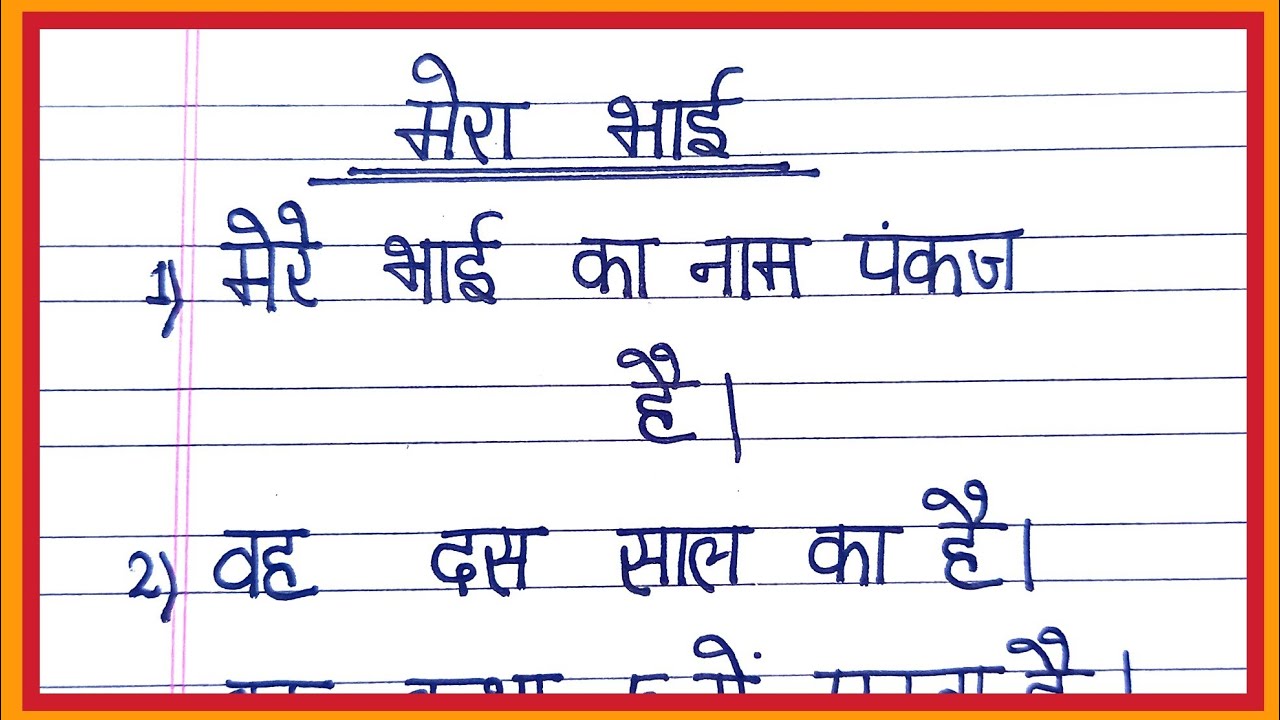 मेरा भाई
1) मेरे भाई का नाम पंकज
है।
2) वह दस साल का है।
में है।